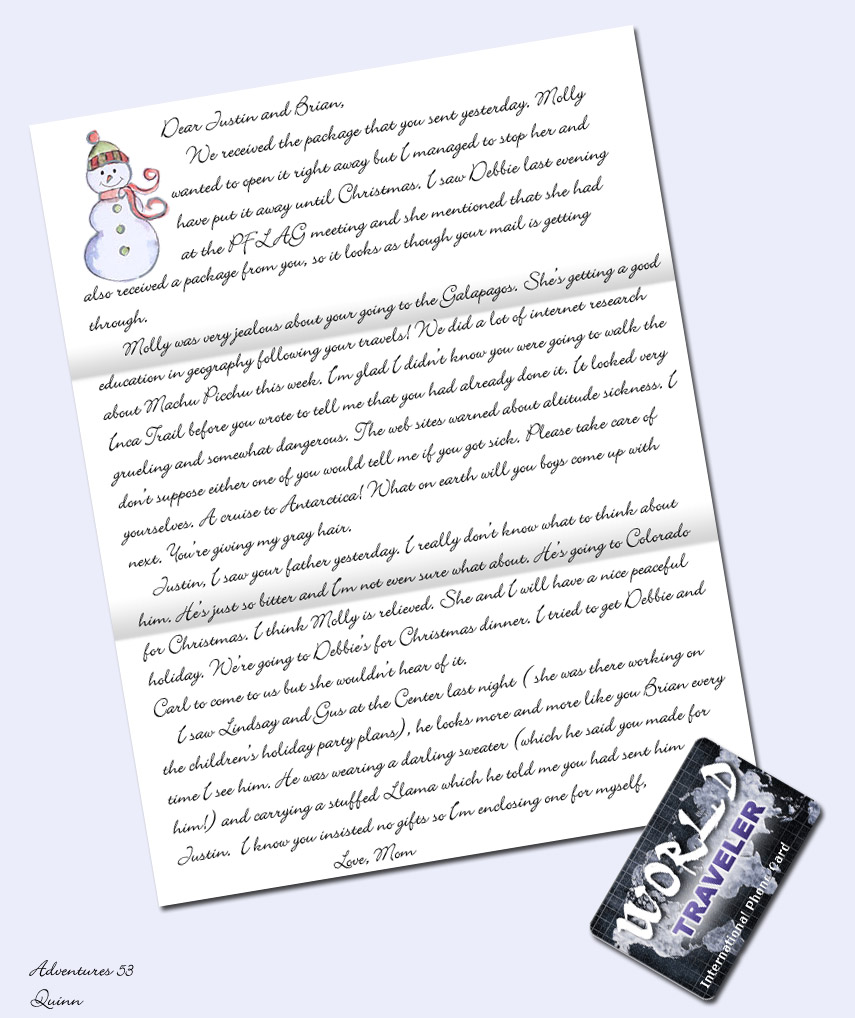 Dear Justin and Brian,
We received the package that you sent yesterday. Molly
wanted to open it right away but I managed to stop her and
have put it away until Christmas. I saw Debbie last evening
at the PFLAG meeting and she mentioned that she had
also received a package from you, so it looks as though your mail is getting
through.
Molly was very jealous about your going to the Galapagos. She's getting a good
education in geography following your travels! We did a lot of internet research
about Machu Picchu this week. I'm glad I didn't know you were going to walk the
Inca Trail before you wrote to tell me that you had already done it. It looked very
grueling and somewhat dangerous. The web sites warned about altitude sickness. I
don't suppose either one of you would tell me if you got sick. Please take care of
yourselves. A cruise to Antarctica! What on earth will you boys come up with
next. You're giving my gray hair.
Justin, I saw your father yesterday. I really don't know what to think about
him. He's just so bitter and I'm not even sure what about. He's going to Colorado
for Christmas. I think Molly is relieved. She and I will have a nice peaceful
holiday. We're going to Debbie's for Christmas dinner. I tried to get Debbie and
Carl to come to us but she wouldn't hear of it.
I saw Lindsay and Gus at the Center last night ( she was there working on
the children's holiday party plans), he looks more and more like you Brian every
time I see him. He was wearing a darling sweater (which he said you made for
him!) and carrying a stuffed Llama which he told me you had sent him
Justin. I know you insisted no gifts so I'm enclosing one for myself,
Love, Mom
WORLD
TRAVELER
International Phone Card
Adventures 53
Quinn